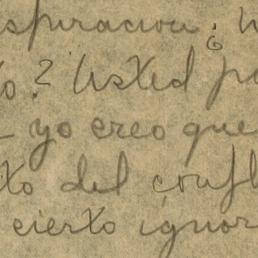 spiracion; ¿
o? Usted p
yo creo que
to del confl
cierto ignor